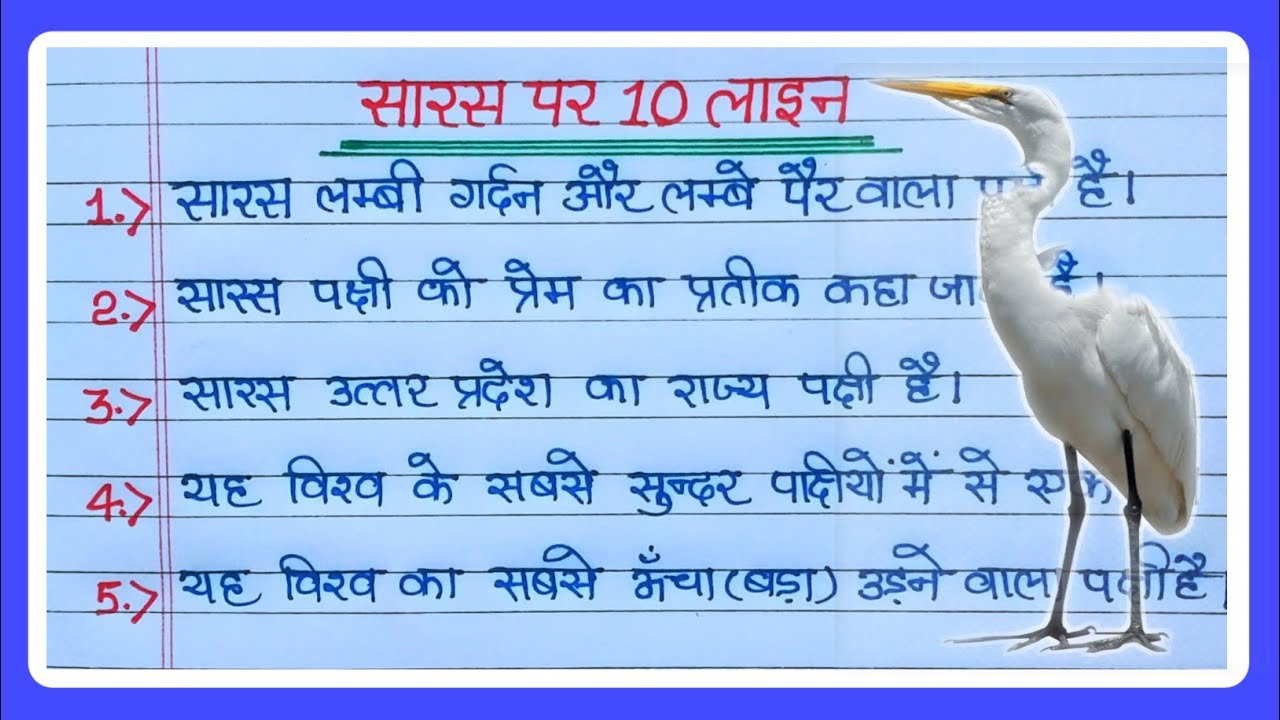 सारस पर 10 लाइन
1.> सारस लम्बी गर्दन और लम्बे पैर वाला है।
2.> सारस पक्षी को प्रेम का प्रतीक कहा है।
3.> सारस उत्तर प्रदेश का राज्य पक्षी है।
4.> यह विश्व के सबसे सुन्दर पक्षीयों में से एक
5.> यह विश्व का सबसे ऊँचा (बड़ा) उड़ने वाला पक्षी है।